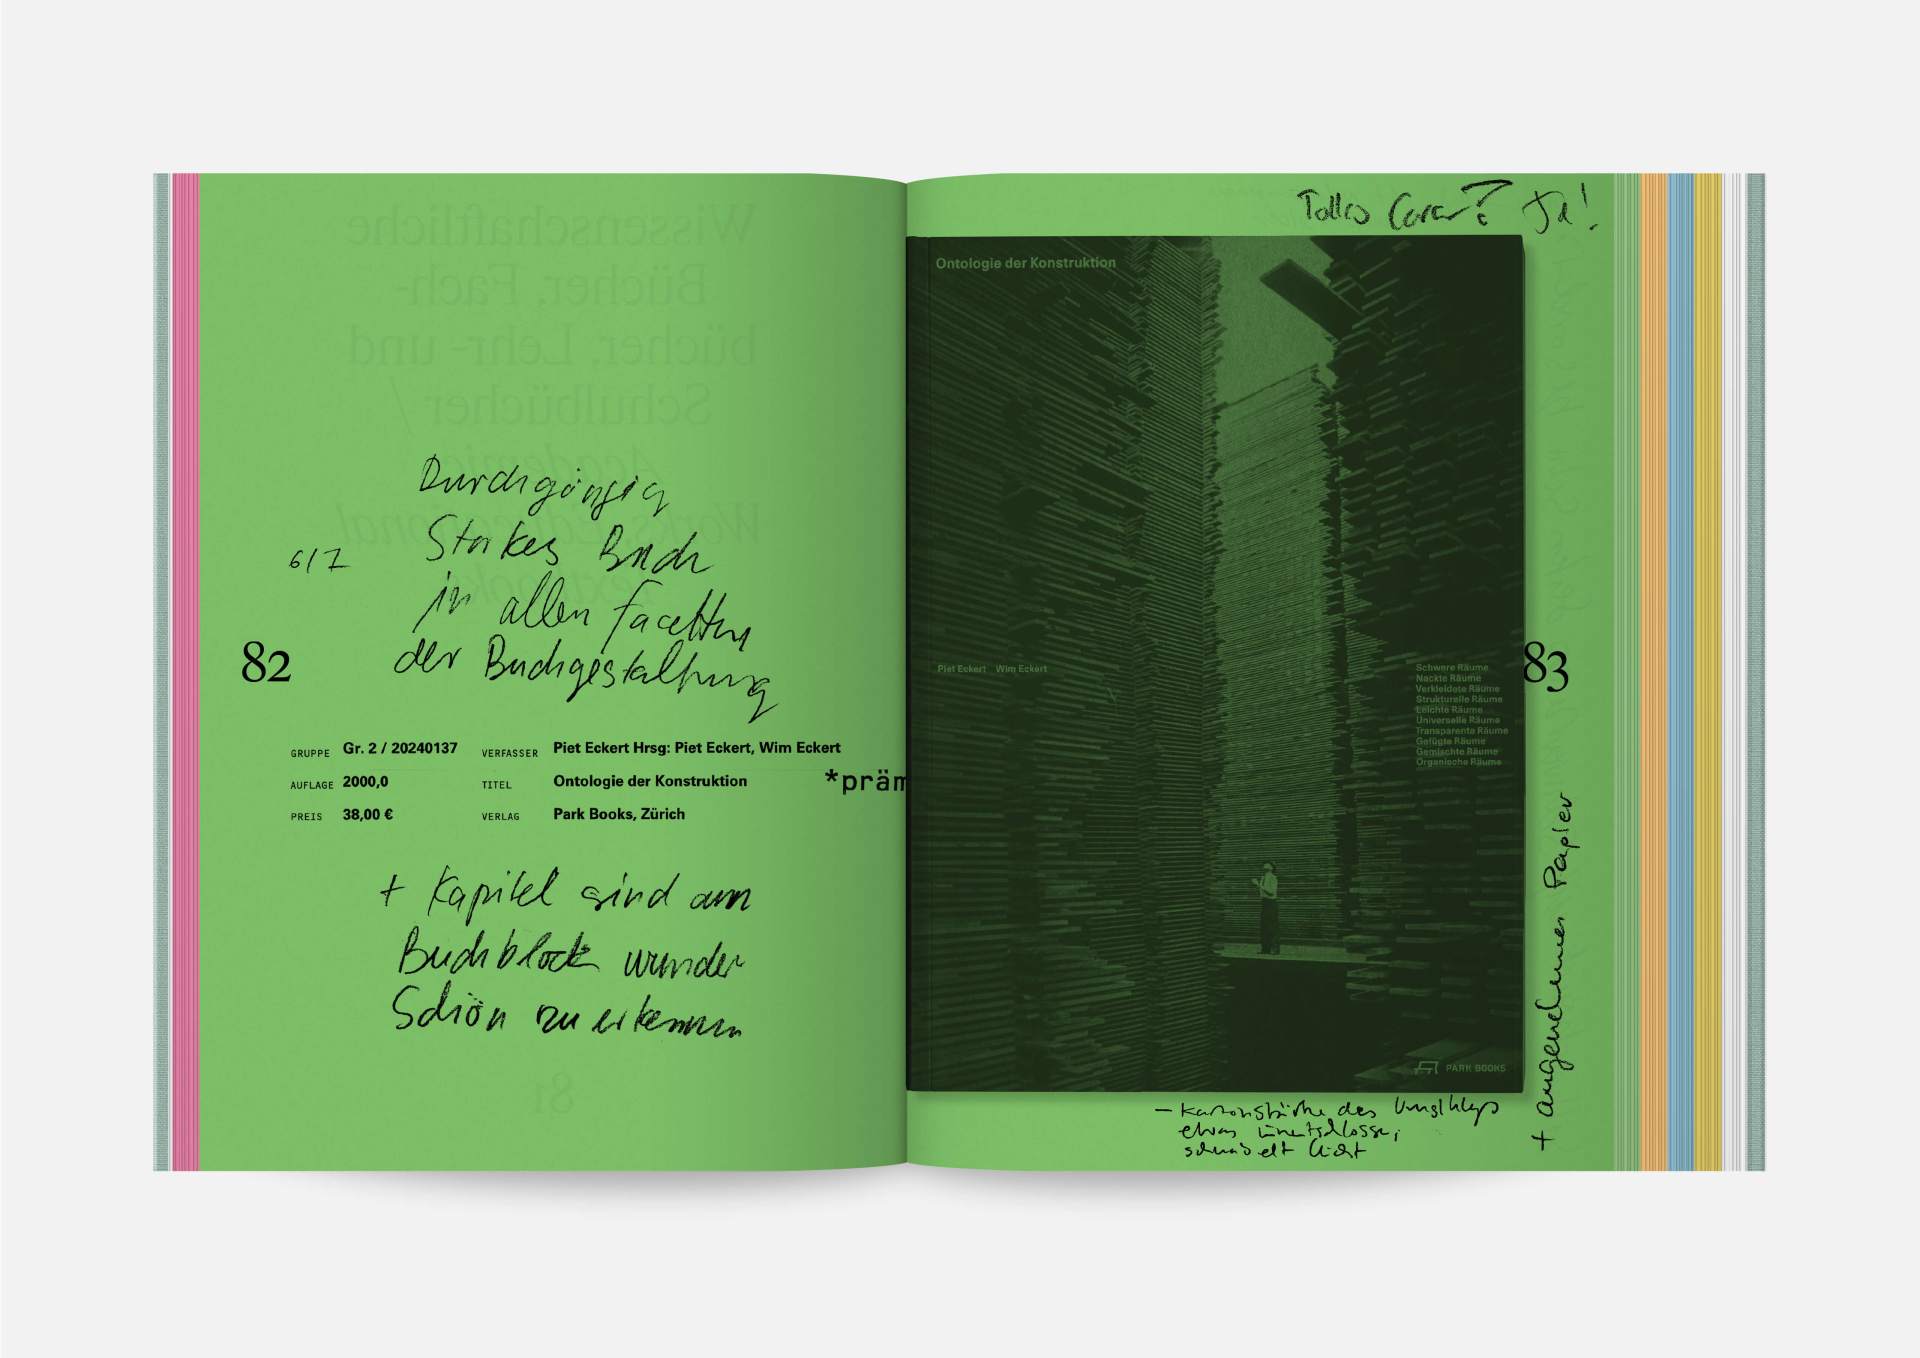 Durchgängig
6/7
Starkes Buch
in allen Facetten
der Buchgestaltung
82
GRUPPE Gr. 2 / 20240137 VERFASSER Piet Eckert Hrsg: Piet Eckert, Wim Eckert
AUFLAGE 2000,0 TITEL Ontologie der Konstruktion *präm
PREIS 38,00 € VERLAG Park Books, Zürich
+ Kapitel sind am
Buchblock wunder
schön zu erkennen
Wissenschaftliche
Bücher, Fach-
bücher, Lehr- und
Schulbücher /
Academic
Works, Educational
Textbooks
81
Tolles Cover? Ja!
Ontologie der Konstruktion
Piet Eckert Wim Eckert
Schwere Räume
Nackte Räume
Verkleidete Räume
Strukturelle Räume
Leichte Räume
Universelle Räume
Transparente Räume
Gefügte Räume
Gemischte Räume
Organische Räume
83
PARK BOOKS
+ angenehmes Papier
– Kartonstärke des Umschlags
etwas unentschlossen,
schnabelt leicht